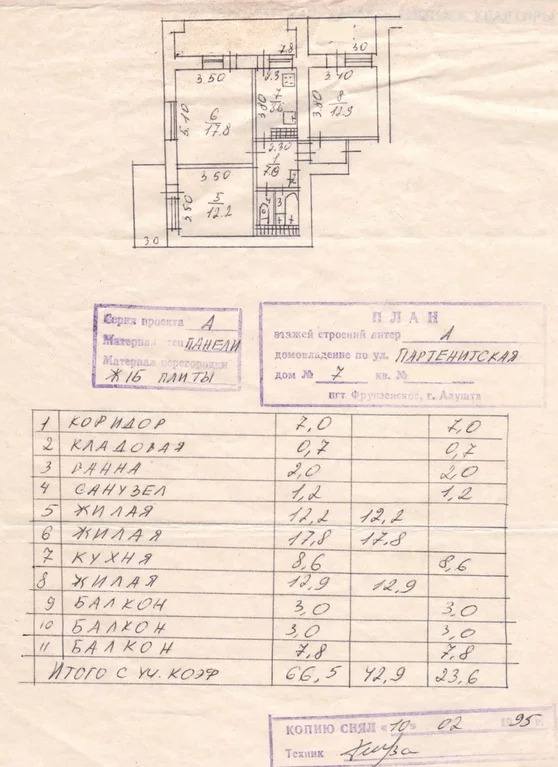 7.8
3.0
3.50
2.3
3.40
5.10
6
17.8
3.80
7
8.6
3.80
8
12.9
2.30
1
7.0
3.50
3.50
5
12.2
3
3.0
Серия проекта А
Материал стен ПАНЕЛИ
Материал перегородки
Ж/Б ПЛИТЫ
ПЛАН
этажей строений литер А
домовладение по ул. ПАРТЕНИТСКАЯ
дом № 7 кв. №
пгт Фрунзенское, г. Алушта
1 КОРИДОР 7,0 7,0
2 КЛАДОВАЯ 0,7 0,7
3 ВАННА 2,0 2,0
4 САНУЗЕЛ 1,2 1,2
5 ЖИЛАЯ 12,2 12,2
6 ЖИЛАЯ 17,8 17,8
7 КУХНЯ 8,6 8,6
8 ЖИЛАЯ 12,9 12,9
9 БАЛКОН 3,0 3,0
10 БАЛКОН 3,0 3,0
11 БАЛКОН 7,8 7,8
ИТОГО С УЧ. КОЭФ 66,5 42,9 23,6
КОПИЮ СНЯЛ «10» 02 1995 г.
Техник